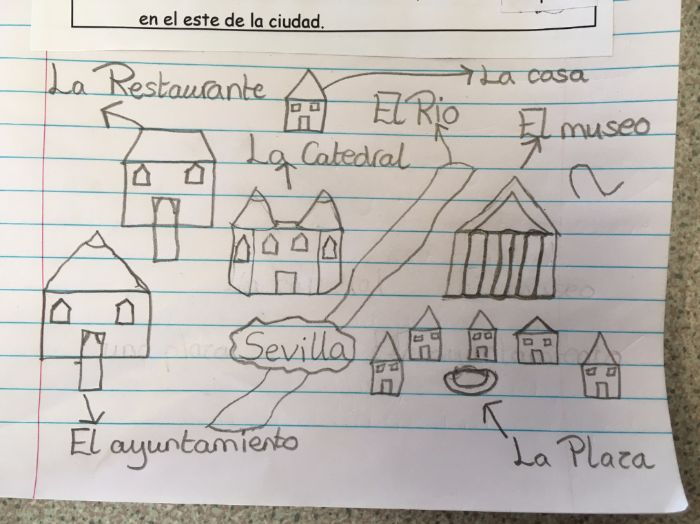 en el este de la ciudad.
La Restaurante
La casa
El Rio
El museo
La Catedral
Sevilla
El ayuntamiento
La Plaza